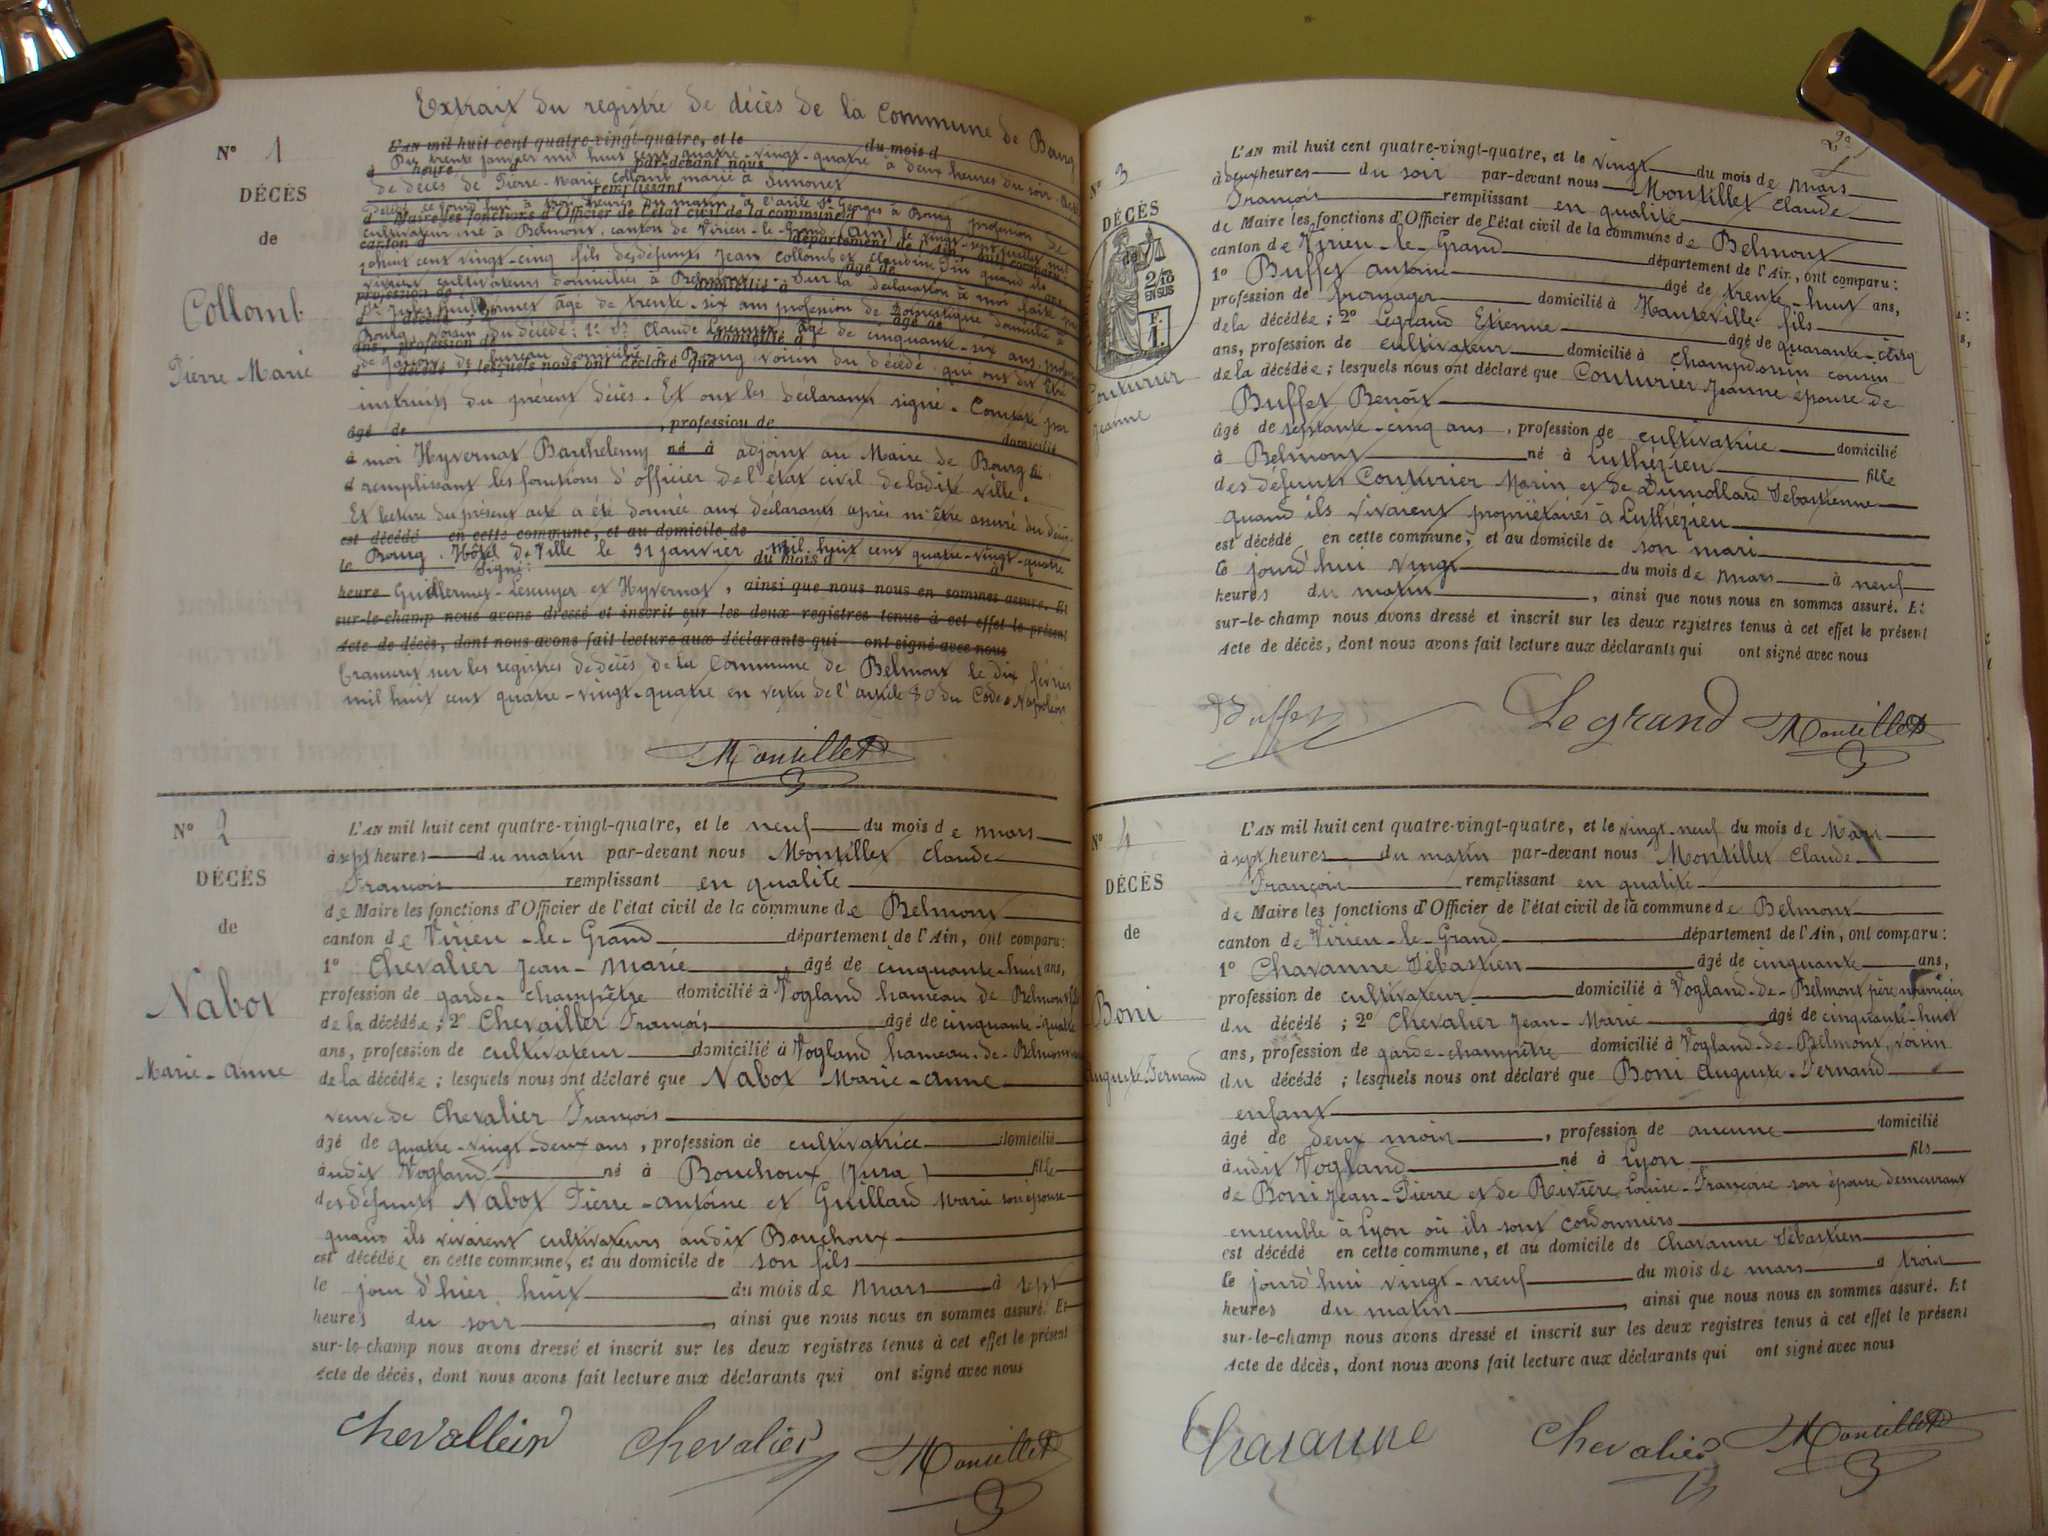 Extrait du registre de décès de la Commune de Bourg
N° 1
DÉCÈS
de
Collomb
Pierre Marie
L'AN mil huit cent quatre-vingt-quatre, et le du mois d
Du trente janvier mil huit cent quatre-vingt-quatre à deux heures du soir. Acte
heure par-devant nous
de décès de Pierre-Marie Collomb marié à
remplissant
décédé ce jourd'hui à trois heures du matin, à l'asile St Georges à Bourg profession de
d Maire les fonctions d'Officier de l'état civil de la commune d
cultivateur né à Belmont, canton de Virieu-le-Grand (Ain) le vingt-sept juillet mil
canton d département de l'Ain, ont comparu
huit cent vingt-cinq fils des défunts Jean Collomb et Claudine quand ils
âgé de
vivaient cultivateurs domiciliés à Belmont. Sur la déclaration à moi faite par
profession de domicilié à
1° Sr Jules Guillermet âgé de trente-six ans profession de domestique domicilié à
Bourg, voisin du décédé; 2° Sr Claude Lesuyer, âgé de cinquante-six ans, profession
ans, profession de domicilié à
de garçon de bureau domicilié à Bourg voisin du décédé qui ont dit être
d décédé ; lesquels nous ont déclaré que
instruits du présent décès. Et ont les déclarants signé. Constaté par
âgé de , profession de domicilié
à moi Hyvernat Barthelemy né à adjoint au Maire de Bourg
d remplissant les fonctions d'officier de l'état civil de ladite ville.
Et lecture du présent acte a été donnée aux déclarants après m'être assuré du décès.
est décédé en cette commune, et au domicile de
le Bourg. Hôtel de Ville le 31 janvier mil huit cent quatre-vingt-quatre
Signé: du mois d à
heure Guillermet-Lesuyer et Hyvernat, ainsi que nous nous en sommes assuré. Et
sur-le-champ nous avons dressé et inscrit sur les deux registres tenus à cet effet le présent
Acte de décès, dont nous avons fait lecture aux déclarants qui ont signé avec nous
Transcrit sur les registres de décès de la Commune de Belmont le dix février
mil huit cent quatre-vingt-quatre en vertu de l'article 80 du Code Napoléon
Montillet
N° 2
DÉCÈS
de
Nabot
Marie-Anne
L'AN mil huit cent quatre-vingt-quatre, et le neuf du mois de mars
à sept heures du matin par-devant nous Montillet Claude
François remplissant en qualité
de Maire les fonctions d'Officier de l'état civil de la commune de Belmont
canton de Virieu-le-Grand département de l'Ain, ont comparu:
1° Chevalier Jean-Marie, âgé de cinquante-huit ans,
profession de garde-champêtre domicilié à Vogland hameau de Belmont fils
de la décédée; 2° Chevailler François âgé de cinquante-quatre
ans, profession de cultivateur domicilié à Vogland hameau-de-Belmont
de la décédée; lesquels nous ont déclaré que Nabot Marie-Anne
veuve de Chevalier François
âgé de quatre-vingt-deux ans, profession de cultivatrice domicilié
audit Vogland né à Bouchoux (Jura) fille
des défunts Nabot Pierre-Antoine et Guillard Marie son épouse
quand ils vivaient cultivateurs audit Bouchoux
est décédée en cette commune, et au domicile de son fils
le jour d'hier huit du mois de mars à sept
heures du soir, ainsi que nous nous en sommes assuré. Et
sur-le-champ nous avons dressé et inscrit sur les deux registres tenus à cet effet le présent
Acte de décès, dont nous avons fait lecture aux déclarants qui ont signé avec nous
Chevallier Chevalier Montillet
2e
N° 3
DÉCÈS
de
2/10 EN SUS
F. 1.
Couturier
Jeanne
L'AN mil huit cent quatre-vingt-quatre, et le vingt du mois de mars
à deux heures du soir par-devant nous Montillet Claude
François remplissant en qualité
de Maire les fonctions d'Officier de l'état civil de la commune de Belmont
canton de Virieu-le-Grand département de l'Ain, ont comparu:
1° Buffet Antoine âgé de trente-huit ans,
profession de fromager domicilié à Hauteville fils
de la décédée; 2° Legrand Etienne âgé de quarante-cinq
ans, profession de cultivateur domicilié à Champdossin cousin
de la décédée; lesquels nous ont déclaré que Couturier Jeanne épouse de
Buffet Benoît
âgé de soixante-cinq ans, profession de cultivatrice domicilié
à Belmont né à Luthézieu fille
des défunts Couturier Marin et de Dumollard Sébastienne
quand ils vivaient propriétaires à Luthézieu
est décédé en cette commune, et au domicile de son mari
le jourd'hui vingt du mois de mars à neuf
heures du matin, ainsi que nous nous en sommes assuré. Et
sur-le-champ nous avons dressé et inscrit sur les deux registres tenus à cet effet le présent
Acte de décès, dont nous avons fait lecture aux déclarants qui ont signé avec nous
Buffet Legrand Montillet
N° 4
DÉCÈS
de
Boni
Auguste-Fernand
L'AN mil huit cent quatre-vingt-quatre, et le vingt-neuf du mois de Mars
à sept heures du matin par-devant nous Montillet Claude
François remplissant en qualité
de Maire les fonctions d'Officier de l'état civil de la commune de Belmont
canton de Virieu-le-Grand département de l'Ain, ont comparu:
1° Chavanne Sébastien âgé de cinquante ans,
profession de cultivateur domicilié à Vogland-de-Belmont père nourricier
du décédé; 2° Chevalier Jean-Marie âgé de cinquante-huit
ans, profession de garde-champêtre domicilié à Vogland-de-Belmont, voisin
du décédé; lesquels nous ont déclaré que Boni Auguste-Fernand
enfant
âgé de deux mois, profession de aucune domicilié
audit Vogland né à Lyon fils
de Boni Jean-Pierre et de Rivière Louise-Françoise son épouse demeurant
ensemble à Lyon où ils sont cordonniers
est décédé en cette commune, et au domicile de Chavanne Sébastien
le jourd'hui vingt-neuf du mois de mars à trois
heures du matin, ainsi que nous nous en sommes assuré. Et
sur-le-champ nous avons dressé et inscrit sur les deux registres tenus à cet effet le présent
Acte de décès, dont nous avons fait lecture aux déclarants qui ont signé avec nous
Chavanne Chevalier Montillet